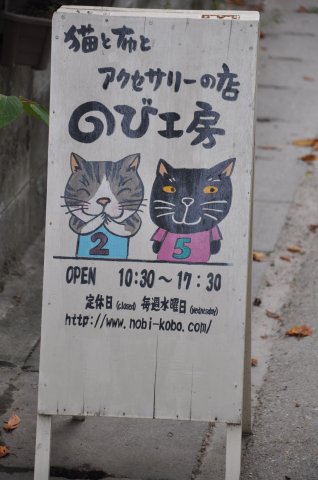 猫と布と
アクセサリーの店
のび工房
2
5
OPEN 10:30～17:30
定休日(closed) 毎週水曜日(wednesday)
http://www.nobi-kobo.com/